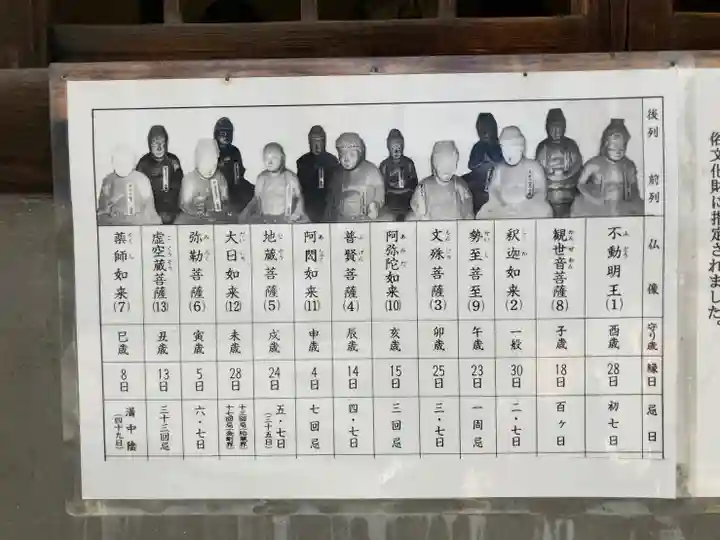 後列　前列
仏像
守り歳
縁日
忌日
不動明王(1)
酉歳
28日
初七日
観世音菩薩(8)
子歳
18日
百ヶ日
釈迦如来(2)
一般
30日
二・七日
勢至菩至(9)
午歳
23日
一周忌
文殊菩薩(3)
卯歳
25日
三・七日
阿弥陀如来(10)
亥歳
15日
三回忌
普賢菩薩(4)
辰歳
14日
四・七日
阿閦如来(11)
申歳
4日
七回忌
地蔵菩薩(5)
戌歳
24日
五・七日
(三十五日)
大日如来(12)
未歳
28日
十三回忌(胎蔵界)
十七回忌(金剛界)
弥勒菩薩(6)
寅歳
5日
六・七日
虚空蔵菩薩(13)
丑歳
13日
三十三回忌
薬師如来(7)
巳歳
8日
満中陰
(四十九日)
俗文化財に指定されました。